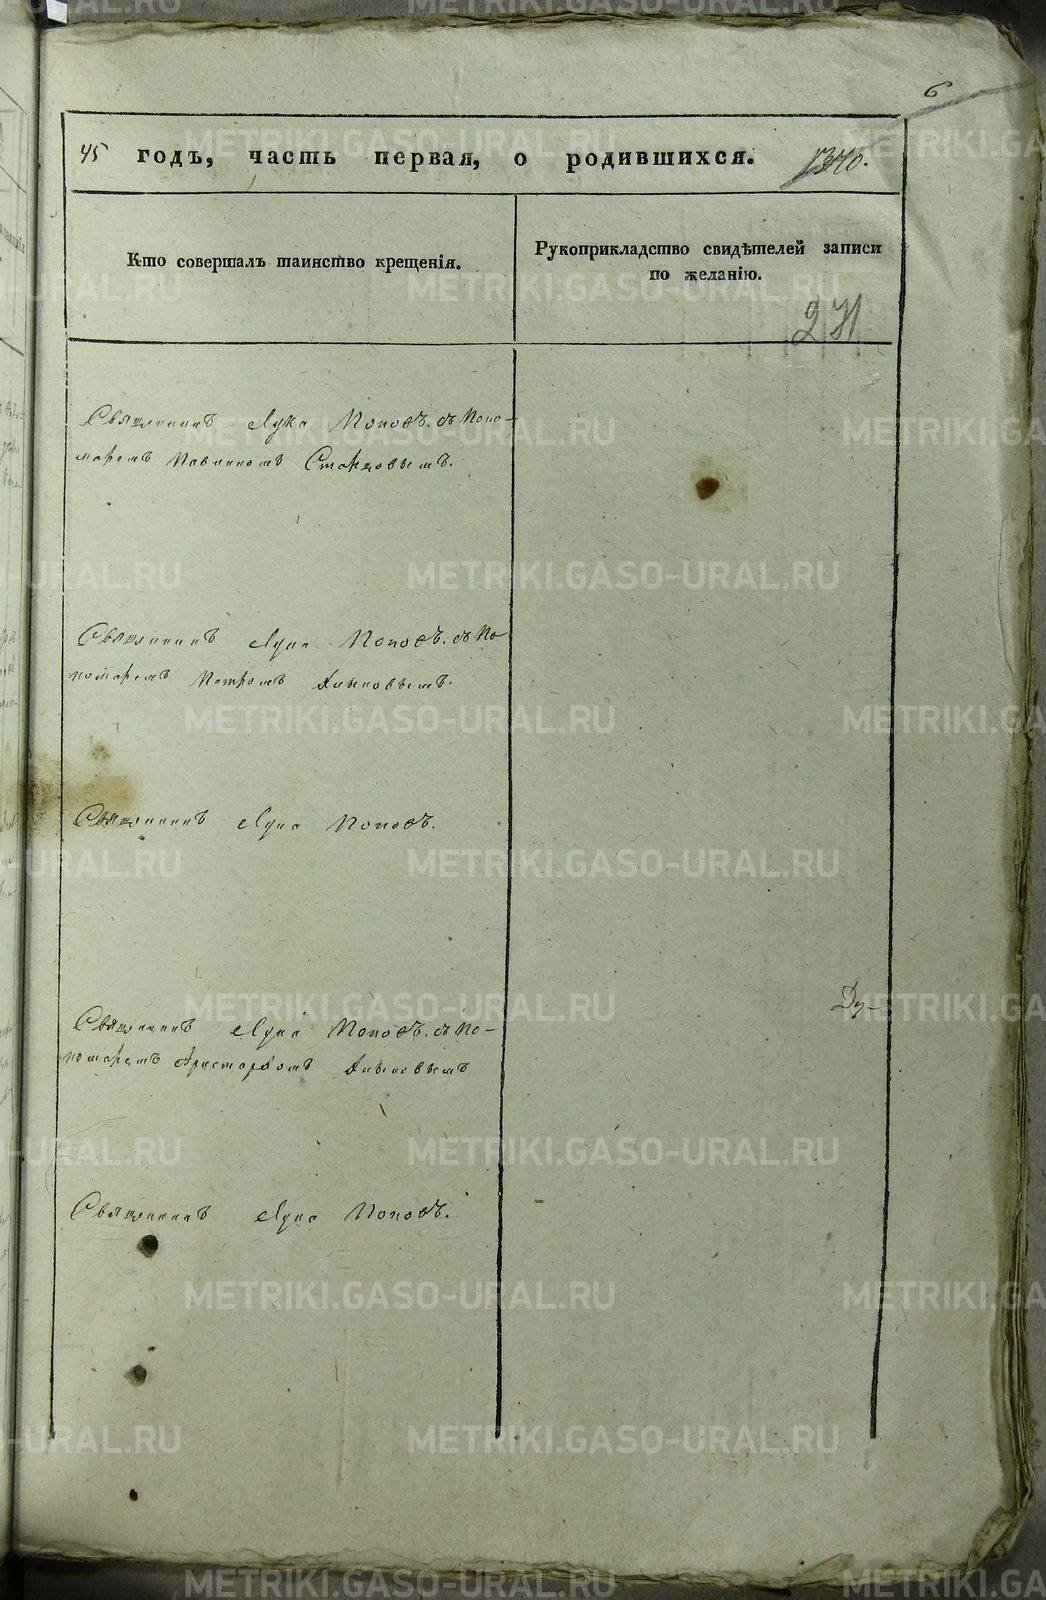 6
45 годъ, часть первая, о родившихся. 1340.
Кто совершалъ таинство крещенія.
Рукоприкладство свидѣтелей записи
по желанію.
271
Священникъ Лука Поповъ. съ Поно-
маремъ Павлиномъ Старцовымъ.
Священникъ Лука Поповъ. съ По
номаремъ Петромъ
Священникъ Лука Поповъ.
Ду-
Священникъ Лука Поповъ. съ По-
номаремъ Аристархомъ
Священникъ Лука Поповъ.
METRIKI.GASO-URAL.RU